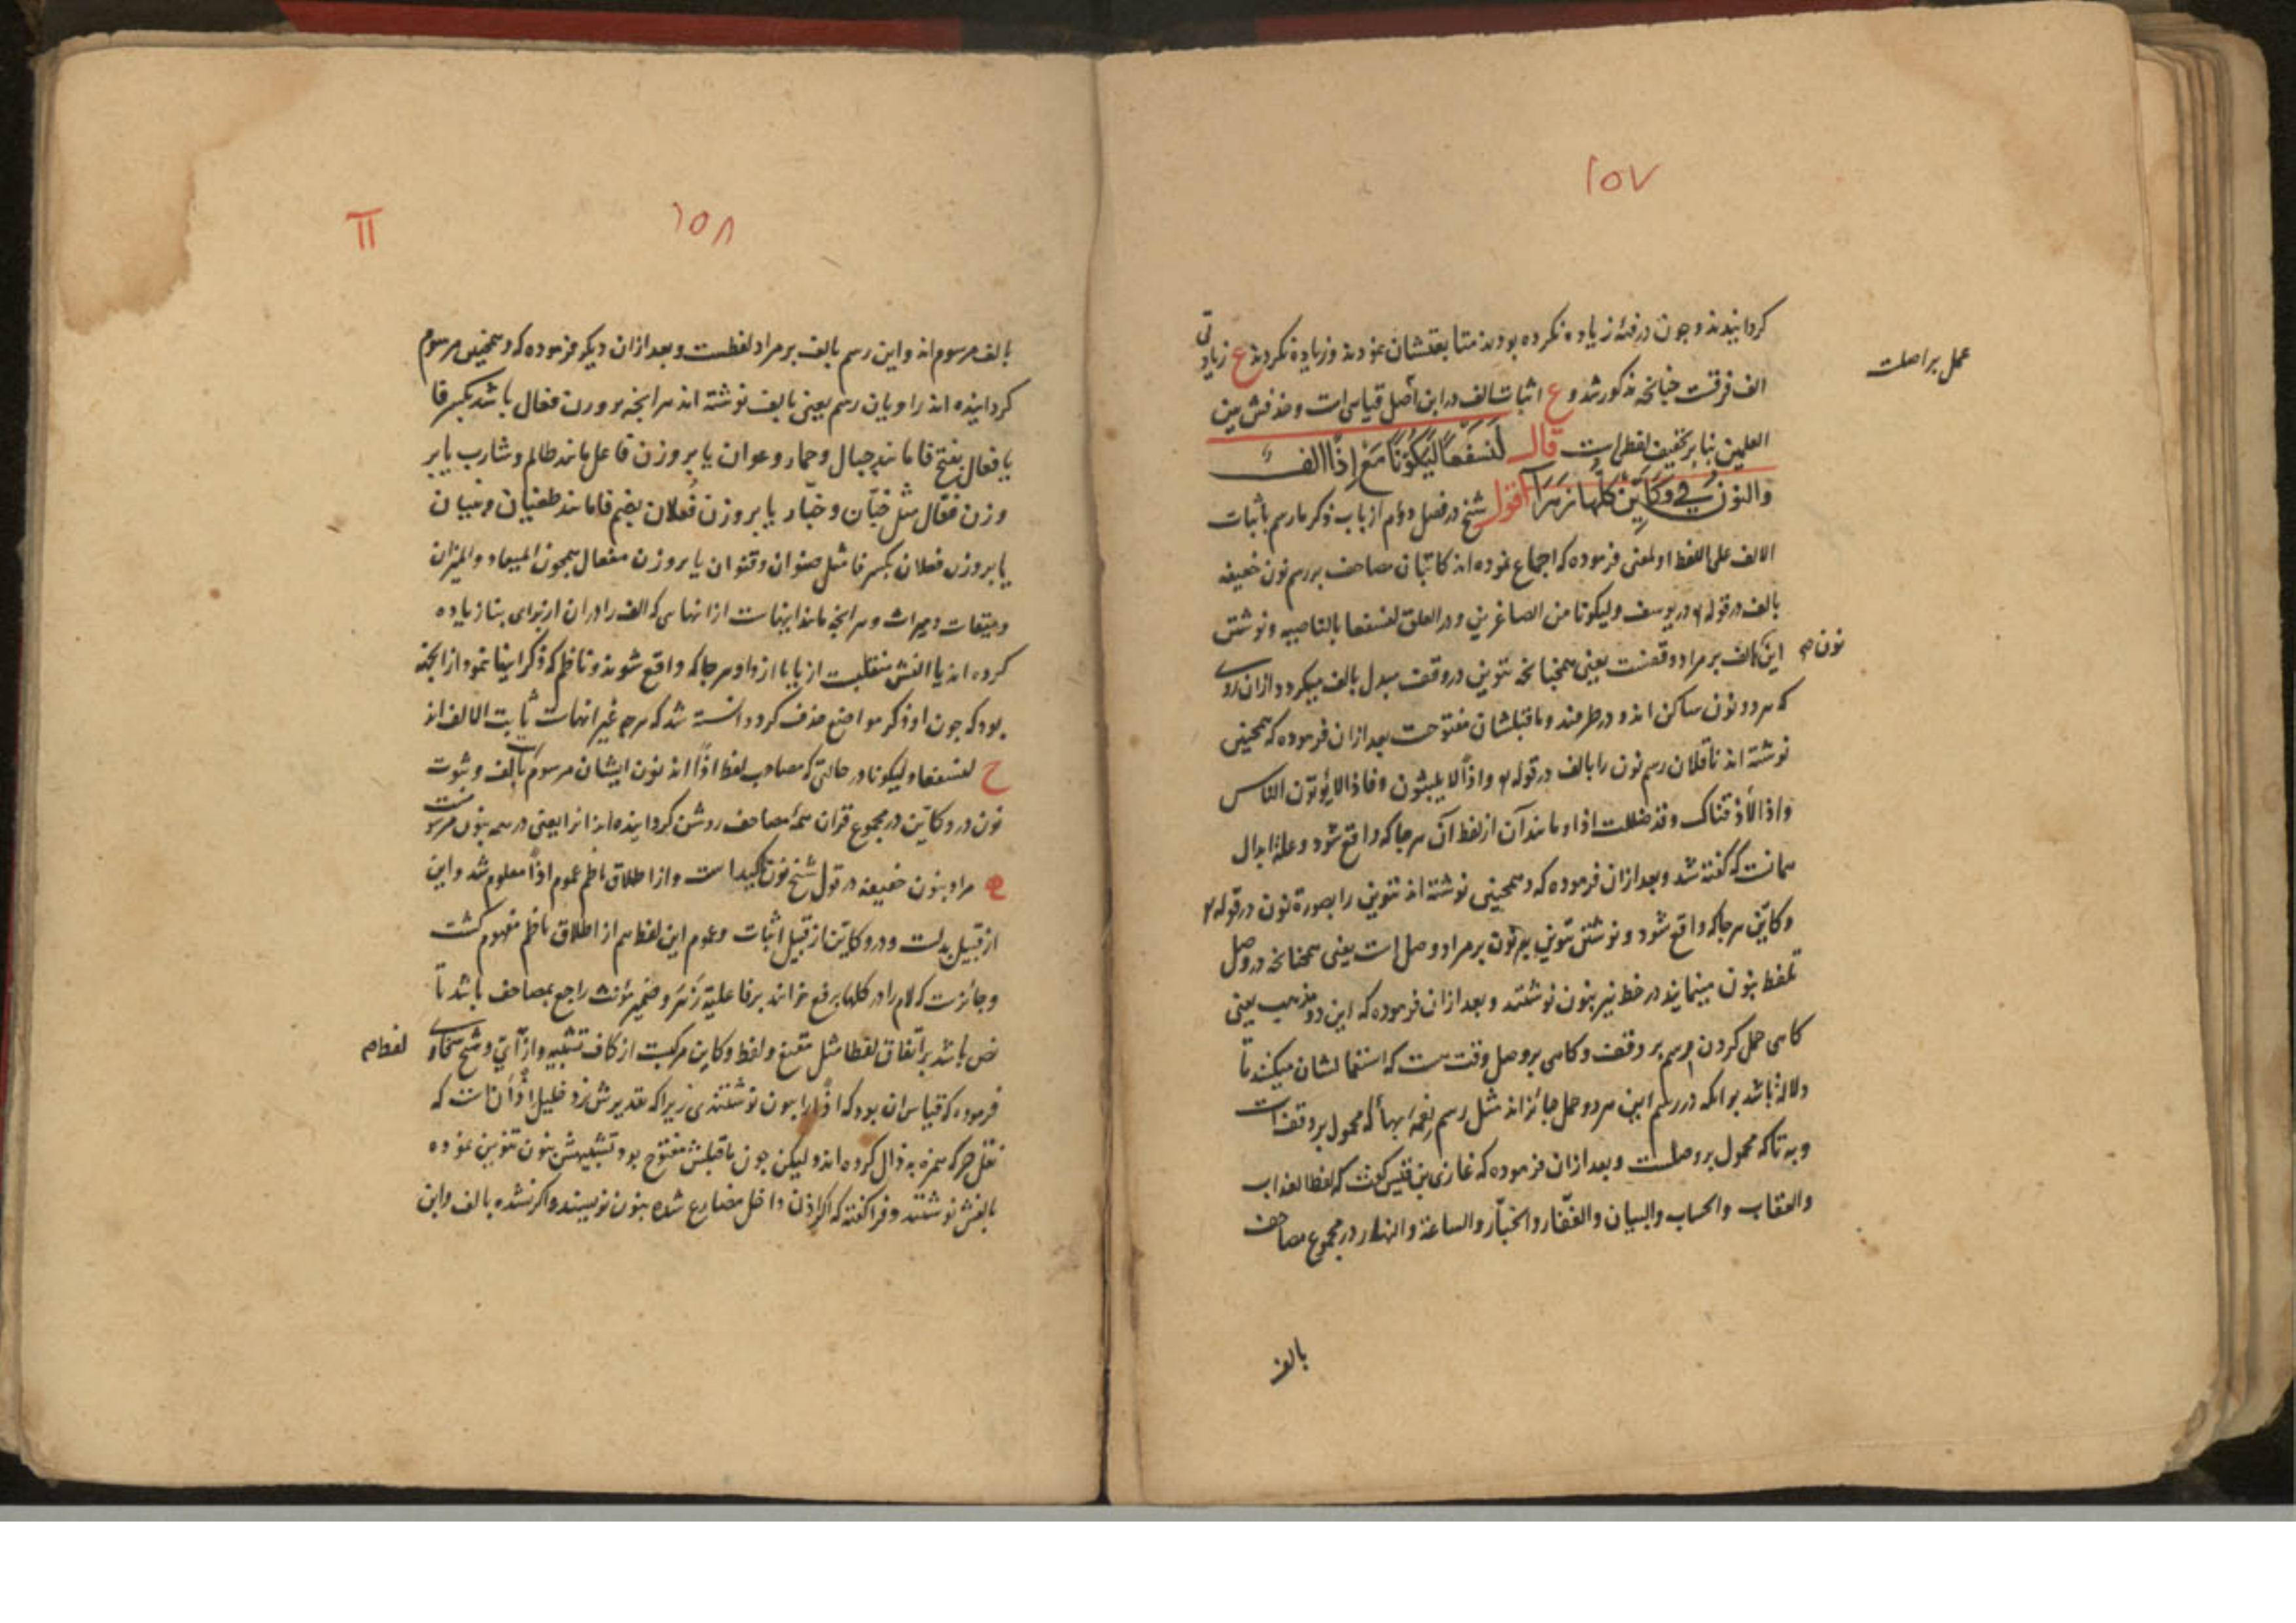 ١٥٧
گردانیدند و چون در فئه زیاده نکرده بودند متابعتشان نمودند و زیاده نکردند ع زیادتی
عمل بر اصلست
الف فرقست چنانچه مذکور شد و ع اثبات الف در این اصل قیاسی است و حذفش بین
العلمین بنا بر تخفیف لفظی است قال لَنَسْفَعًا لَيَكُونًا مَعْ اِذًا الف
والنون في وكأين كلها زهرا اقول شیخ در فصل دوم از باب ذکر ما رسم باثبات
الالف علی اللفظ او لمعنی فرموده که اجماع نموده اند کاتبان مصاحف بر رسم نون خفیفه
بالف در قوله در یوسف ولیکونا من الصاغرین و در العلق لنسفعا بالناصیه و نوشتن
نون
این بالف بر مراد وقفست یعنی همچنانچه تنوین در وقف مبدل بالف میگردد از ان روی
که هر دو نون ساکن اند و در طرفند و ماقبلشان مفتوحست بعد ازان فرموده که همچنین
نوشته اند ناقلان رسم نون را بالف در قوله واذا لا یلبثون و فاذا لا یؤتون الناس
و اذا لاذقناک و قد ضللت اذا و مانند آن از لفظ آن هر جا که واقع شود و علة ابدال
همانست که گفته شد و بعد ازان فرموده که و همچنین نوشته اند تنوین را بصورة نون در قوله
وکاین هر جا که واقع شود و نوشتن تنوین بنون بر مراد وصل است یعنی همچنانچه در وصل
تلفظ بنون مینمایند در خط نیز بنون نوشتند و بعد ازان فرموده که این دو مذهب یعنی
گاهی حمل کردن رسم بر وقف و گاهی بر وصل وقت هست که استعمالشان میکنند تا
دلاله باشد بر انکه در رسم این هر دو حمل جائز اند مثل رسم
و به تا که محمول بر وصلست و بعد ازان فرموده که غازی بن قیس گفت که لفظ العذاب
والعقاب والحساب والبیان والغفّار والجبّار والساعة والنهار در مجموع مصاحف
بالف
١٥٨
بالف مرسوم اند و این رسم بالف بر مراد لفظست و بعد ازان دیگر فرموده که و همچنین مرسوم
گردانیده اند راویان رسم یعنی بالف نوشته اند هر انچه بر وزن فعال باشد بکسر فا
یا فعال بفتح فا مانند جبال و حمار و عوان یا بر وزن فاعل مانند ظالم و شارب یا بر
وزن فعّال مثل خبّان و جبّار یا بر وزن فُعلان بضم فا مانند طغیان و
یا بر وزن فعلان بکسر فا مثل صنوان و قنوان یا بر وزن مفعال همچون المیعاد و المیزان
و میقات و میراث و هر انچه مانند اینهاست از انها که الف را دران از برای بنا زیاده
کرده اند یا الفش منقلبست از یا یا از واو هر جا که واقع شوند و ناظم که ذکر اینها ننمود از انجهة
بود که چون او ذکر مواضع حذف کرد دانسته شد که هرچه غیر انهاست ثابت الالف اند
ح لنسفعا و لیکونا در حالتی که مصاحب لفظ اذًا اند نون ایشان مرسوم بالف و ثبوت
نون در وکاین در مجموع قران همهٔ مصاحف روشن گردانیده اند انرا یعنی در همه بنون مرسومست
مراد بنون خفیفه در قول شیخ نون تاکید است و از اطلاق ناظم عموم اذًا معلوم شد و این
از قبیل بدلست و در وکاین از قبیل اثبات و عموم این لفظ هم از اطلاق ناظم مفهوم گشت
و جائزست که لام را در کلها برفع خوانند بر فاعلیة زَهَرَ و ضمیر مؤنث راجع بمصاحف باشد تا
نص باشد بر اتفاق لفظا مثل معنی و لفظ وکاین مرکبست از کاف تشبیه و از آیّ و شیخ سخاوی
فرموده که قیاس ان بود که اذًا را بنون نوشتندی زیرا که تقدیرش نزد خلیل اذْ اَنْ است که
نقل حرکه همزه به ذال کرده اند و لیکن چون ماقبلش مفتوح بود تشبیهش بنون تنوین نموده
بالفش نوشتند و فرا گفته که اگر اذن داخل مضارع شده بنون نویسند و اگر نشده بالف و این